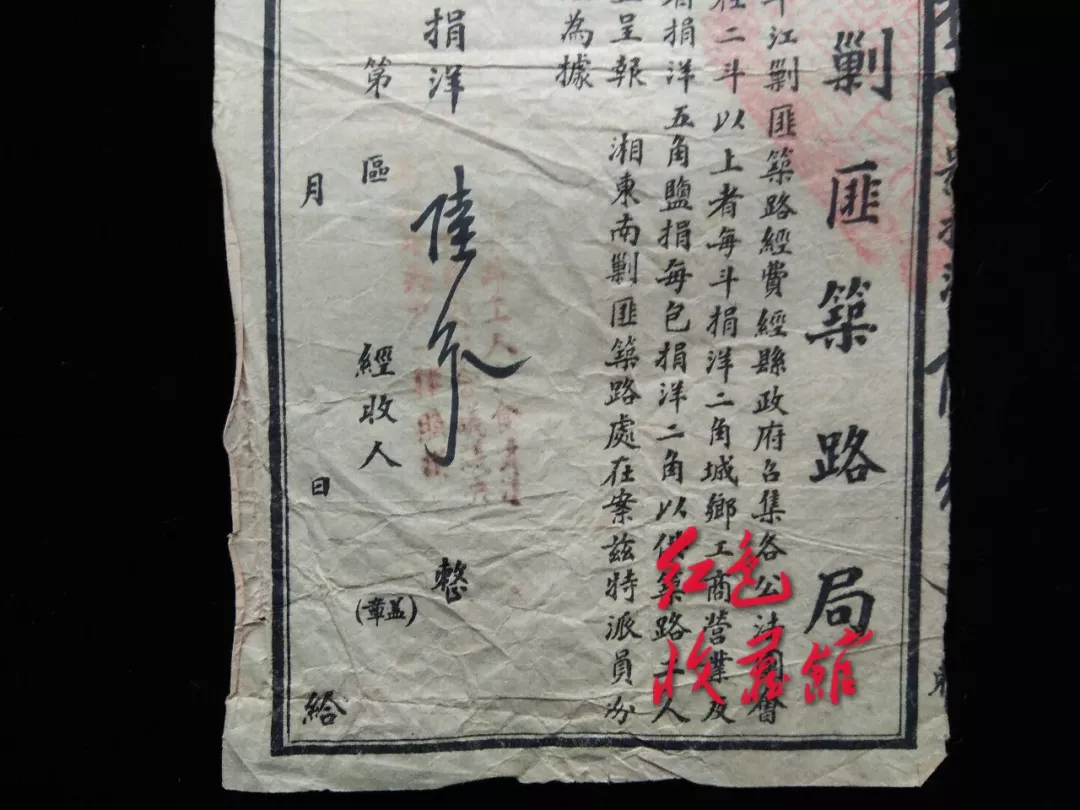 剿匪築路局
江剿匪築路經費經縣政府召集各公法團會
二斗以上者每斗捐洋二角城鄉工商營業及
捐洋五角鹽捐每包捐洋二角以供築路工人
呈報 湘東南剿匪築路處在案茲特派員分
為據
捐洋 陸 整
第 區 經收人 (蓋章)
月 日 給
红色
收藏館